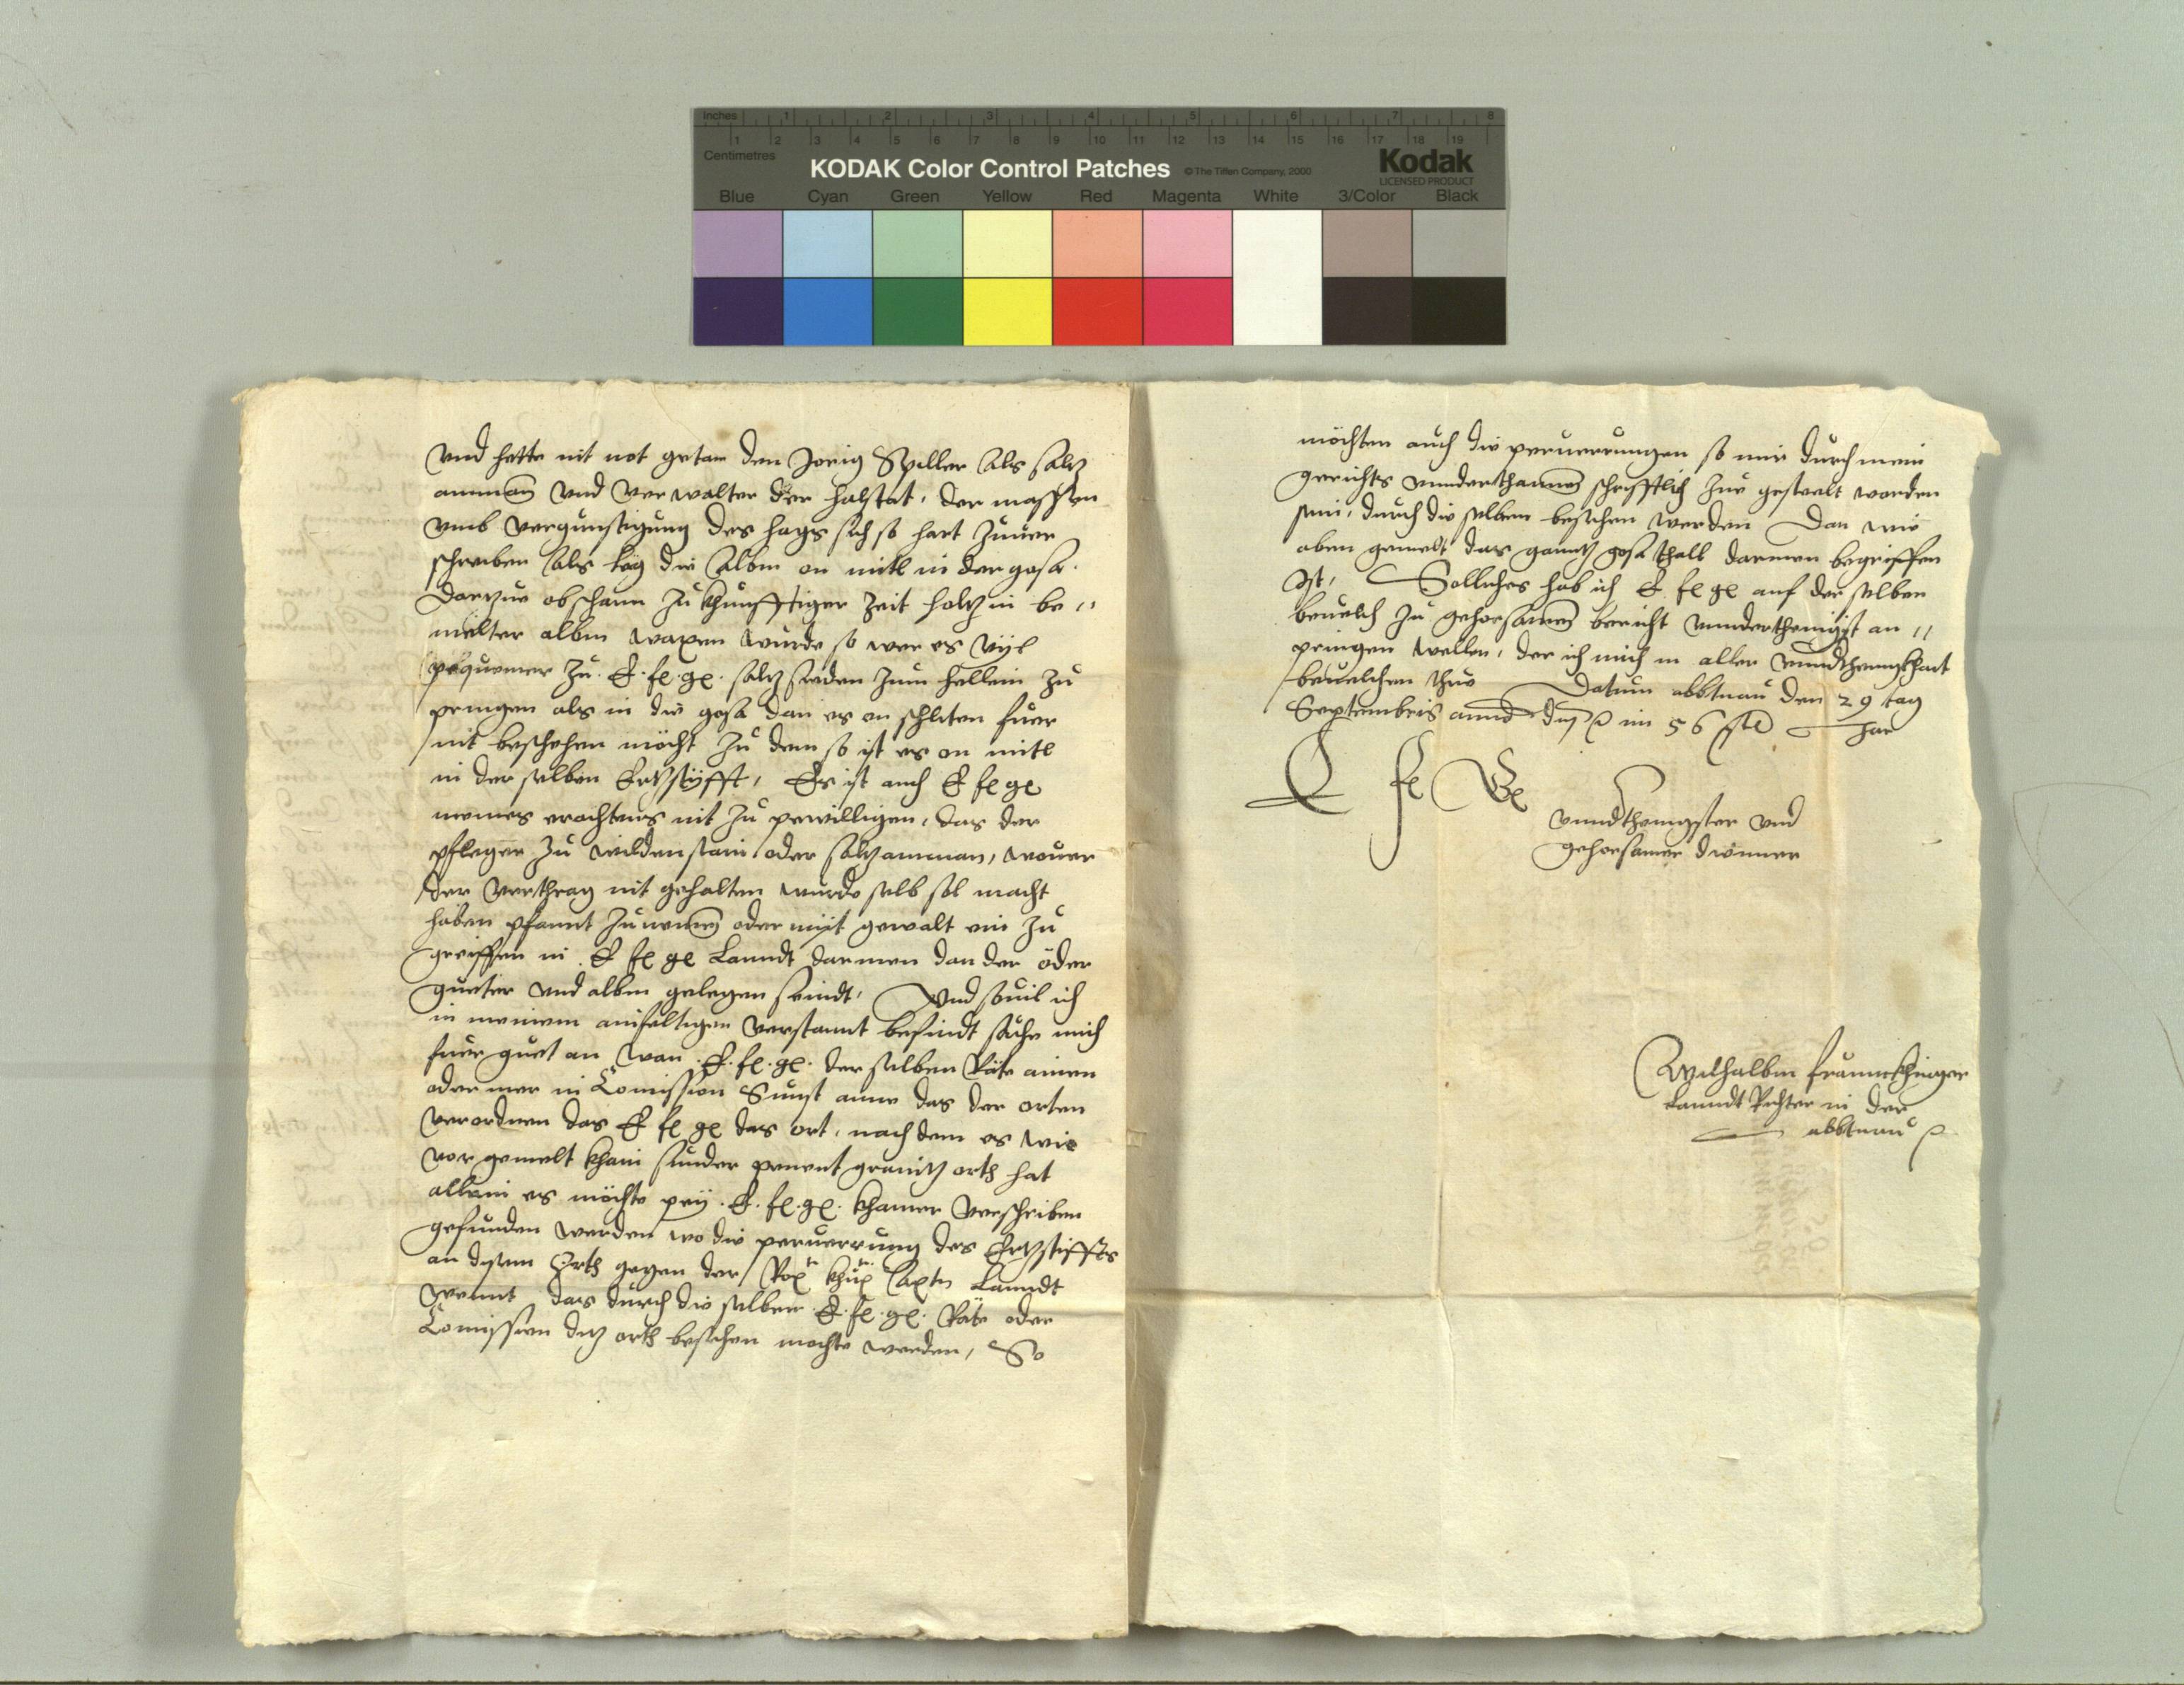 Inches 1 2 3 4 5 6 7 8
1 2 3 4 5 6 7 8 9 10 11 12 13 14 15 16 17 18 19
Centimetres
KODAK Color Control Patches © The Tiffen Company, 2000 Kodak
LICENSED PRODUCT
Blue Cyan Green Yellow Red Magenta White 3/Color Black
Vnd hette nit not getan den Jorig Spiller als saltz
amman vnd verwalter der halstat, der massen
vmb vergunstigung des hags sich so hart zuuer
schreiben als leg die albm on mitl in der gosa.
Dartzue obschann zu khunfftiger zeit holtz in be"
melter albm waxen wurde so wer es vyl
pequemer zu E. fl. gl. saltz sieden zum hellein zu
pringen als in die gosa dan es on schliten fuer
nit beschehen möcht zu dem so ist es on mitl
in derselben Ertzstyfft, Es ist auch E fl gl
meines erachtens nit zu pewilligen, das der
pfleger zu wildenstain oder saltzamman, wouer
der verthrag nit gehalten wurde selb sol macht
haben pfannt zunemen oder mit gewalt ein zu
greiffen in E fl gl Lanndt darinnen dan der öder
gueter vnd albm gelegen seindt, Vnd souil ich
in meinem ainfeltigen verstannt befindt sähe mich
fuer guet an wan E. fl. gl. derselben Räte ainen
oder mer in Comission Sunst anne das der orten
verordnen das E fl gl das ort, nach dem es wie
vor gemelt khain sunder granitz orth hat
allein es möchte pey E. fl. gl. khamer verschriben
gefunden werden wo die peruerrung des Ertzstiffts
an disem Orth gegen der Röm khün Lanndt
wennt, das durch die selben E. fl. gl. Räte oder
Comission ditz orth besehen mochte werden, So
möchten auch die peruerrungen so mir durch mein
gerichts vnnderthannen schrifftlich zue gestelt worden
sein, durch die selben besehen werden Dan wie
oben gemelt das ganntz gosa thall darinnen begriffen
ist, Solliches hab ich E fl gl auf derselben
beuelch zu gehorsamen bericht vnnderthenigist an "
pringen wellen, der ich mich in aller vnnderthenigkhait
beuelchen thue Datum abbtnau den 29 tag
Septembris anno dnj im 56 ste Jar
E fl Gl
vnndthenigster vnd
gehorsamer dienner
Wilhalbm
lanndt Richter in der
abbtnau